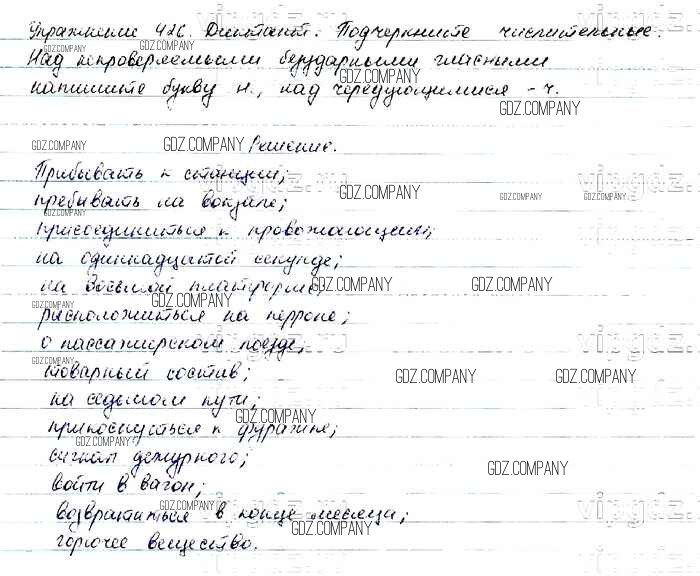 Упражнение 426. Диктант. Подчеркните числительные.
Над непроверяемыми безударными гласными
напишите букву н., над чередующимися - ч.
Решение.
Прибывать к станции;
пребывать на вокзале;
присоединиться к провожающим;
на одиннадцатой секунде;
на восьмой платформе;
расположиться на перроне;
о пассажирском поезде;
товарный состав;
на седьмом пути;
прикоснуться к фуражке;
сигнал дежурного;
войти в вагон;
возвратиться в конце месяца;
горючее вещество.
GDZ.COMPANY
vipgdz.ru